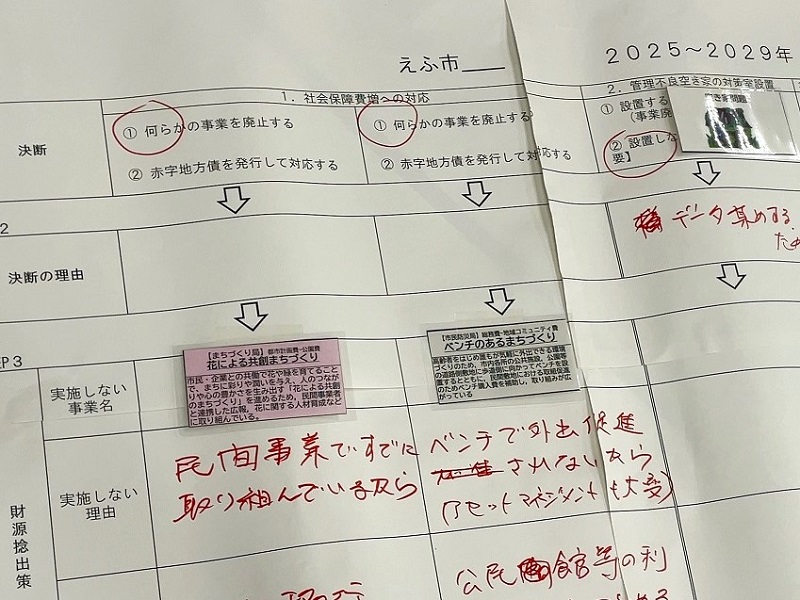 えふ市
２０２５～２０２９年
１．社会保障費増への対応
２．管理不良空き家の対策室設置
決断
① 何らかの事業を廃止する
② 赤字地方債を発行して対応する
① 何らかの事業を廃止する
② 赤字地方債を発行して対応する
① 設置する
（事業廃
② 設置しな
要】
空き家問題
2
決断の理由
データ集めする
ため
P３
実施しない
事業名
【まちづくり局】都市計画費-公園費
花による共創まちづくり
市民・企業との共働で花や緑を育てること
で、まちに彩りや潤いを与え、人のつなが
りや心の豊かさを生み出す「花による共創
のまちづくり」を進めるため、民間事業者
と連携した広報、花に関する人材育成など
に取り組んでいる。
【市民防災局】総務費-地域コミュニティ費
ベンチのあるまちづくり
高齢者をはじめ誰もが気軽に外出できる環境
づくりのため、市内各所の公共施設、公園等
の道路側敷地に歩道側に向かってベンチを設
置するとともに、民間敷地における取組促進
のためベンチ購入費を補助し、取り組みが広
がっている
財源捻出策
実施しない
理由
民間事業ですでに
取り組んでいるなら
ベンチで外出促進
されないから
(アセットマネジメントも大変)
公民館等の利